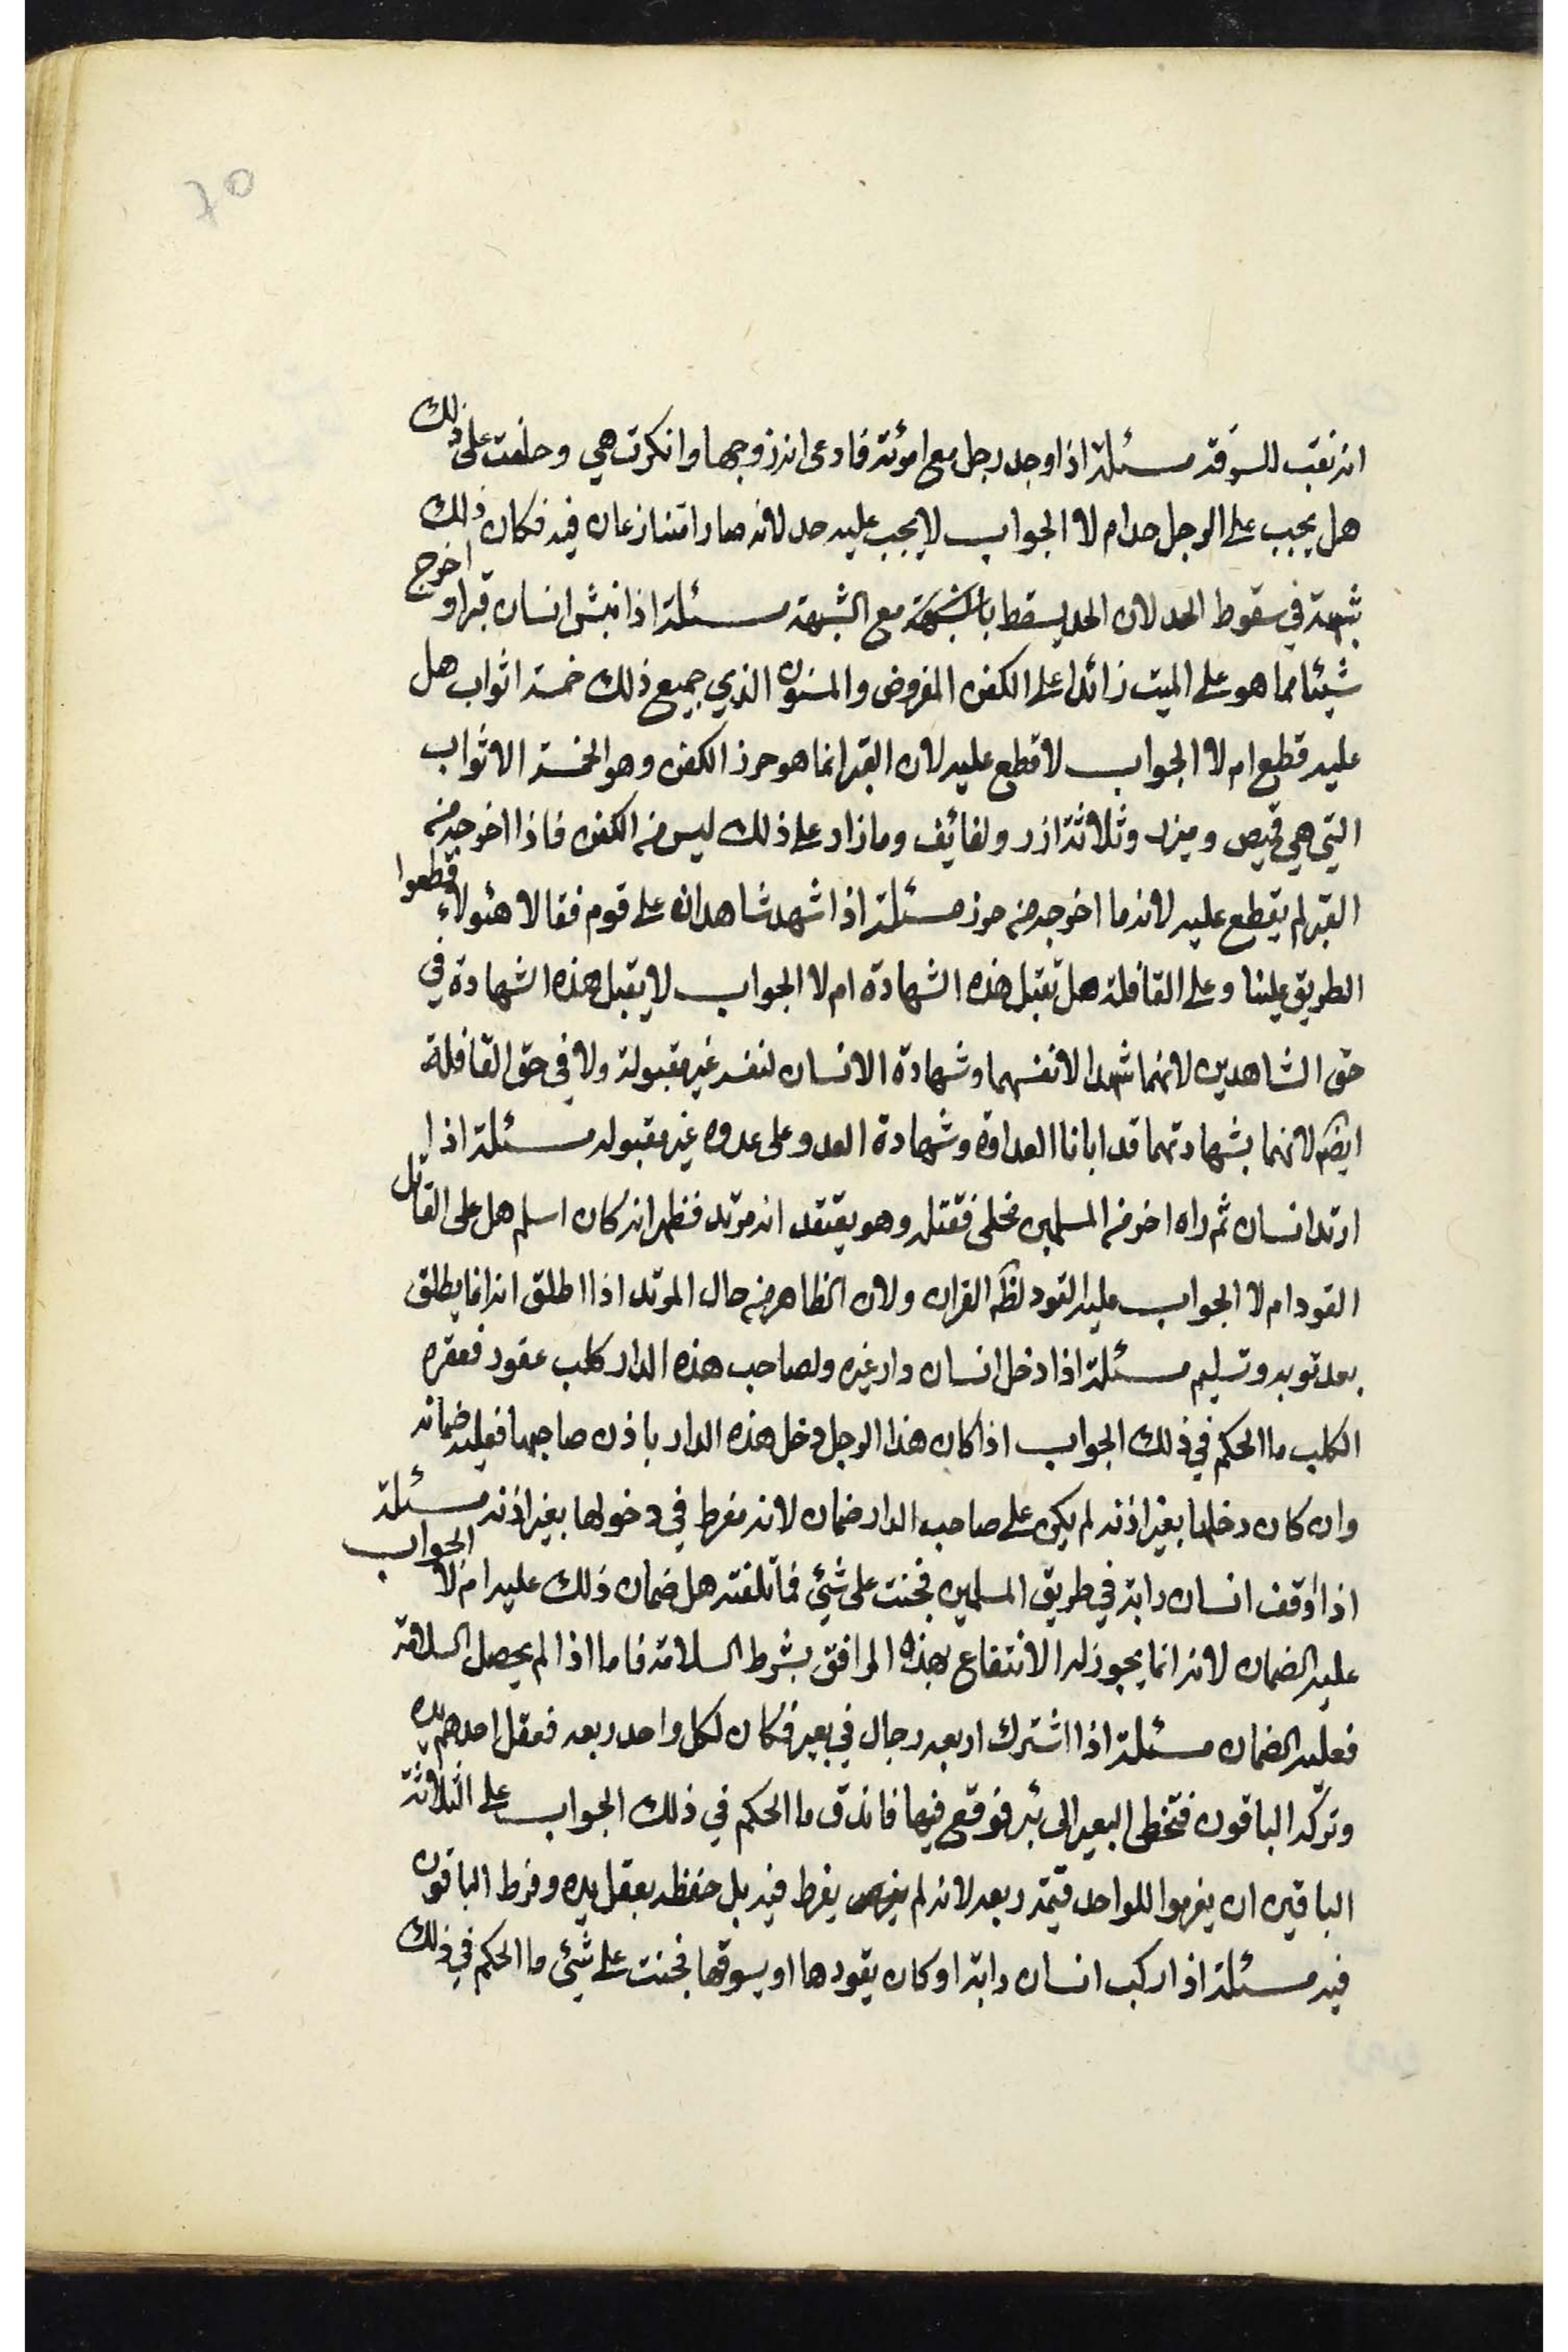 ٦٥
انه نقب للسرقة مسئلة اذا وجد رجل مع امرئة فادعى انه زوجها وانكرت هي وحلفت على ذلك
هل يجب على الرجل حد ام لا الجواب لا يجب عليه حد لانه صارا متنازعان فيه فكان ذلك
شبهة في سقوط الحد لان الحد يسقط بالشبهة مع الشبهة مسئلة اذا نبش انسان قبرا واخرج
شيئا مما هو على الميت زائدا على الكفن المفروض والمسنون الذي جميع ذلك خمسة اثواب هل
عليه قطع ام لا الجواب لا قطع عليه لان القبر انما هو حرز الكفن وهو الخمسة الاثواب
التي هي قميص وميزر وثلاثة ازر ولفائف وما زاد على ذلك ليس من الكفن فاذا اخرجه من
القبر لم يقطع عليه لانه ما اخرجه من حرز مسئلة اذا شهد شاهدان على قوم فقالا هئولاء قطعوا
الطريق علينا وعلى القافلة هل تقبل هذه الشهادة ام لا الجواب لا يقبل هذه الشهادة في
حق الشاهدين لانهما شهدا لانفسهما وشهادة الانسان لنفسه غير مقبولة ولا في حق القافلة
ايضا لانهما بشهادتهما قد ابانا العداوة وشهادة العدو على عدوه غير مقبوله مسئلة اذا
ارتد انسان ثم راه اخر من المسلمين مخلى فقتله وهو يعتقد انه مرتد فظهر انه كان اسلم هل على القاتل
القود ام لا الجواب عليه القود لظاهر القران ولان الظاهر من حال المرتد اذا اطلق انه انما يطلق
بعد توبه وتسليم مسئلة اذا دخل انسان دار غيره ولصاحب هذه الدار كلب عقور فعقره
الكلب ما الحكم في ذلك الجواب اذا كان هذا الرجل دخل هذه الدار باذن صاحبها فعليه ضمانه
وان كان دخلها بغير اذنه لم يكن على صاحب الدار ضمان لانه مفرط في دخولها بغير اذنه مسئلة
اذا اوقف انسان دابة في طريق المسلمين فجنت على شئ فاتلفته هل ضمان ذلك عليه ام لا الجواب
عليه الضمان لانه انما يجوز له الانتفاع بهذه المرافق بشرط السلامة فاما اذا لم يحصل السلامة
فعليه الضمان مسئلة اذا اشترك اربعه رجال في بعير فكان لكل واحد ربعه فعقل احدهم يده
وتركه الباقون فتخطى البعير الى بئر فوقع فيها فاندق ما الحكم في ذلك الجواب على الثلاثة
الباقين ان يغرموا للواحد قيمة ربعه لانه لم يفرط فيه بل حفظه بعقل يده وفرط الباقون
فيه مسئلة اذا ركب انسان دابة او كان يقودها او يسوقها فجنت على شئ ما الحكم في ذلك